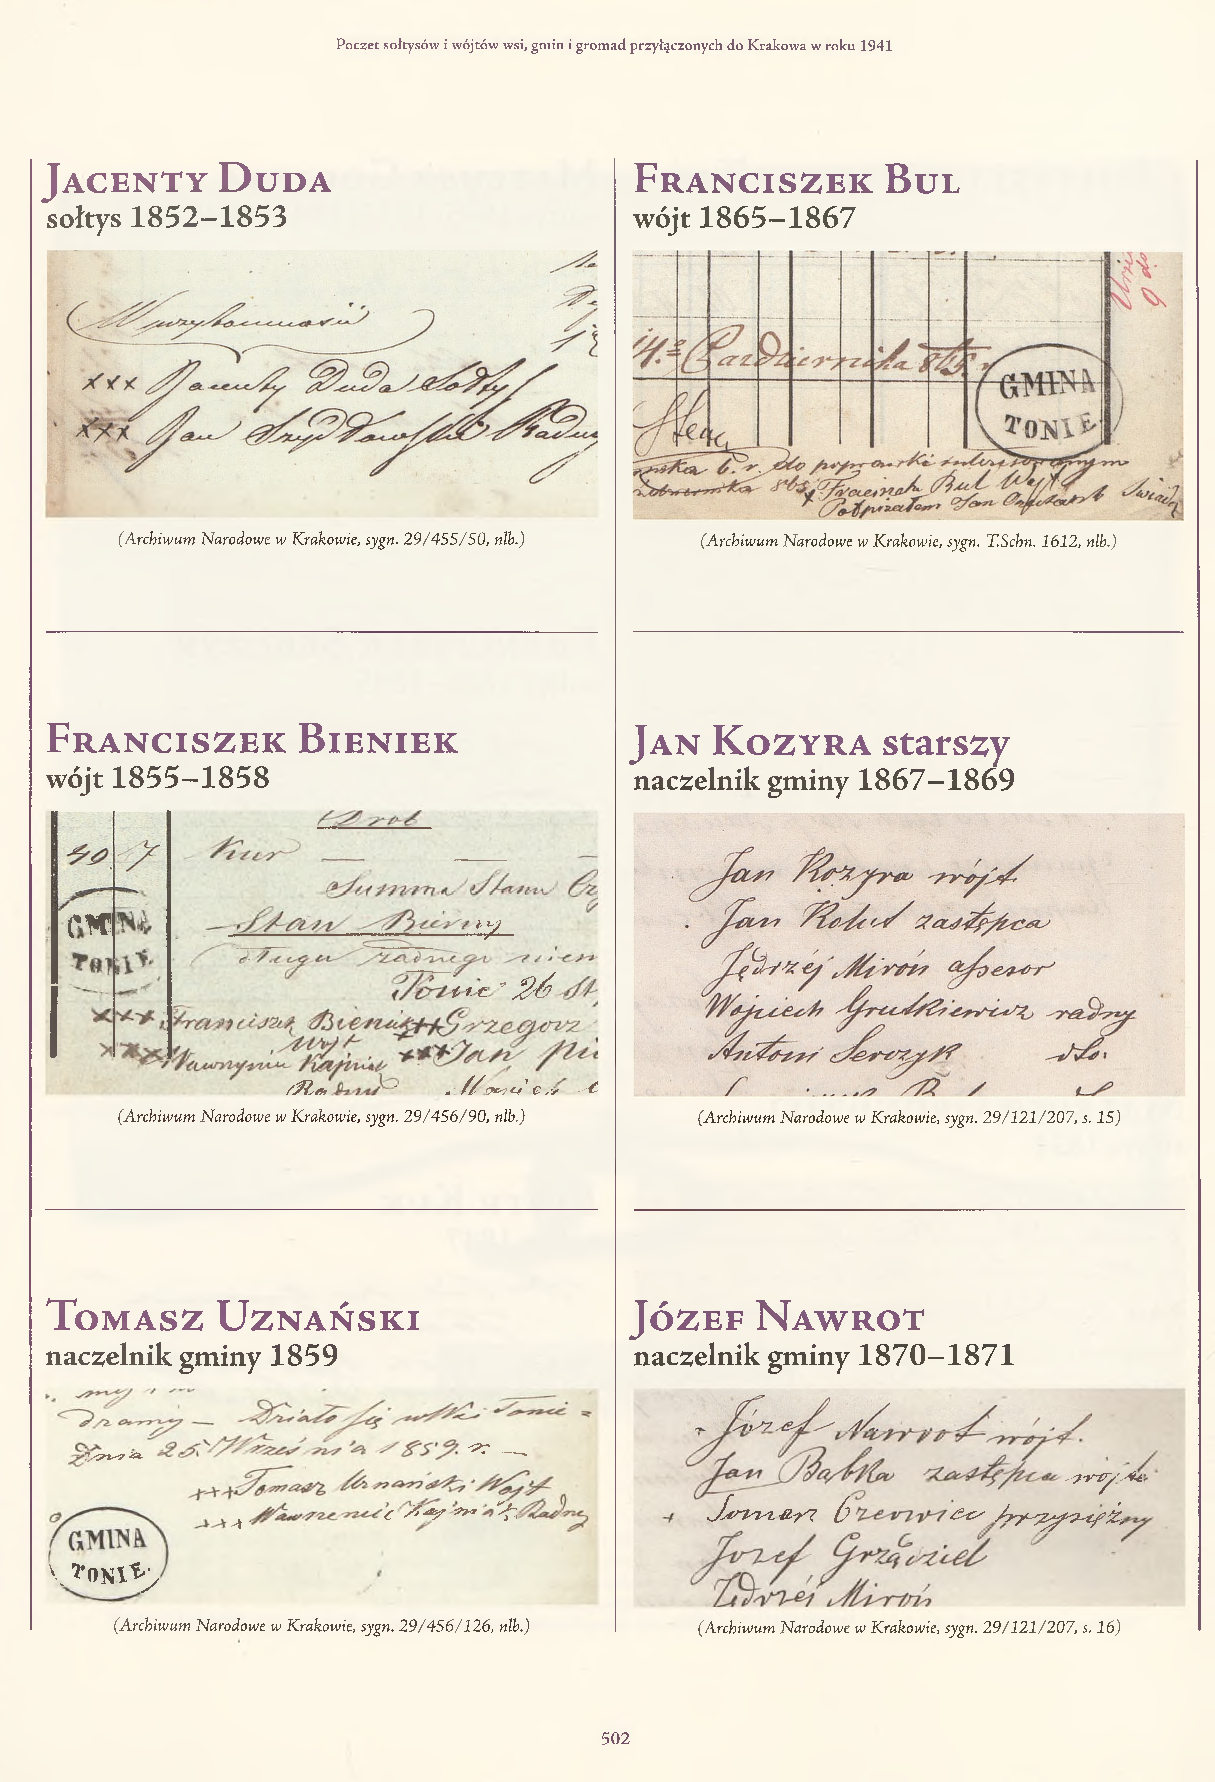 Poczet sołtysów i wójtów wsi, gmin i gromad przyłączonych do Krakowa w roku 1941
Jacenty Duda
sołtys 1852–1853
xxx Jacenty Duda Sołtys
xxx Jan Szydłowski Radny
(Archiwum Narodowe w Krakowie, sygn. 29/455/50, nlb.)
Franciszek Bieniek
wójt 1855–1858
Drob
Kur — — —
Summa Stanu
Stan Bierny
długu żadnego niem
GMINA
TONIE.
Tonie 26
xxx Franciszek Bieniek xxx Grzegorz
Wojt
xxx Wawrzyniec Kajniak xxx Jan
Radny
(Archiwum Narodowe w Krakowie, sygn. 29/456/90, nlb.)
Tomasz Uznański
naczelnik gminy 1859
dzamy — Działo się wWsi Tonie =
Dnia 25. Września 1859. r. —
+++Tomasz Uznański Wojt
+++ Wawrzeniec Kajniak Radny
GMINA
TONIE.
(Archiwum Narodowe w Krakowie, sygn. 29/456/126, nlb.)
Franciszek Bul
wójt 1865–1867
14.º Pazdziernika 865 r
GMINA
TONIE.
6. r. do poprawki
Bul Wojt
Podpisałem Jan
(Archiwum Narodowe w Krakowie, sygn. T.Schn. 1612, nlb.)
Jan Kozyra starszy
naczelnik gminy 1867–1869
Jan Kozyra wójt.
Jan Kolut zastępca
Jędrzéj Miroń assesor
Wojciech Grutkiewicz radny
Antoni Serczyk dto.
(Archiwum Narodowe w Krakowie, sygn. 29/121/207, s. 15)
Józef Nawrot
naczelnik gminy 1870–1871
Józef Nawrot wójt.
Jan Bąbka zastępca wójta
+ przysiężny
Józef Grządziel
Jędrzéj Miroń
(Archiwum Narodowe w Krakowie, sygn. 29/121/207, s. 16)
502